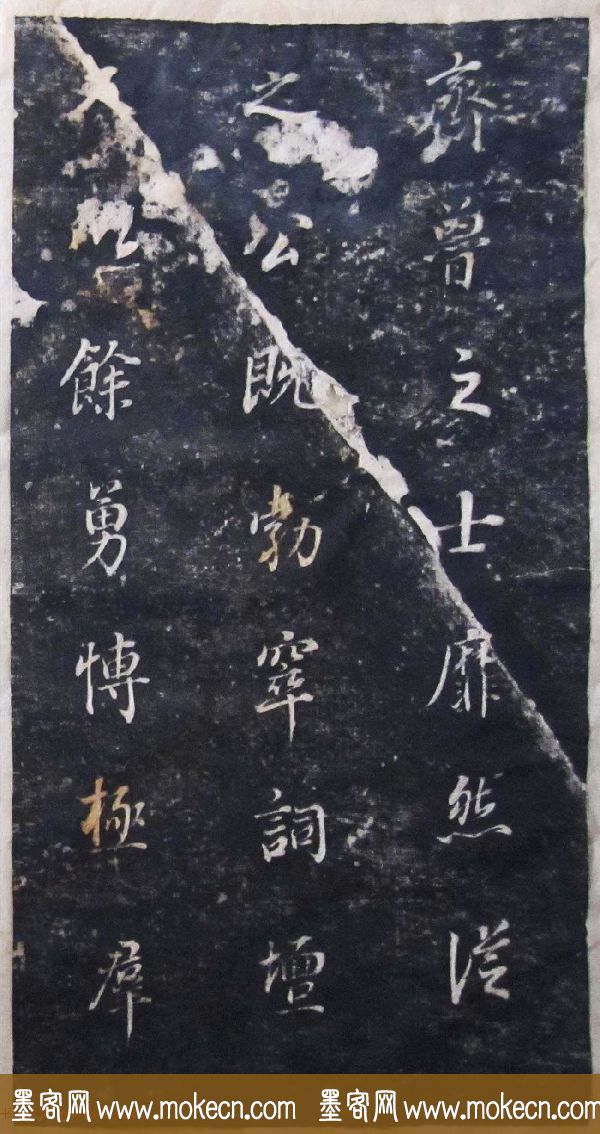 齊魯之士靡然從
之公既勃窣詞壇
大以餘勇博極群
墨客网 www.mokecn.com 墨客网 www.mokecn.com